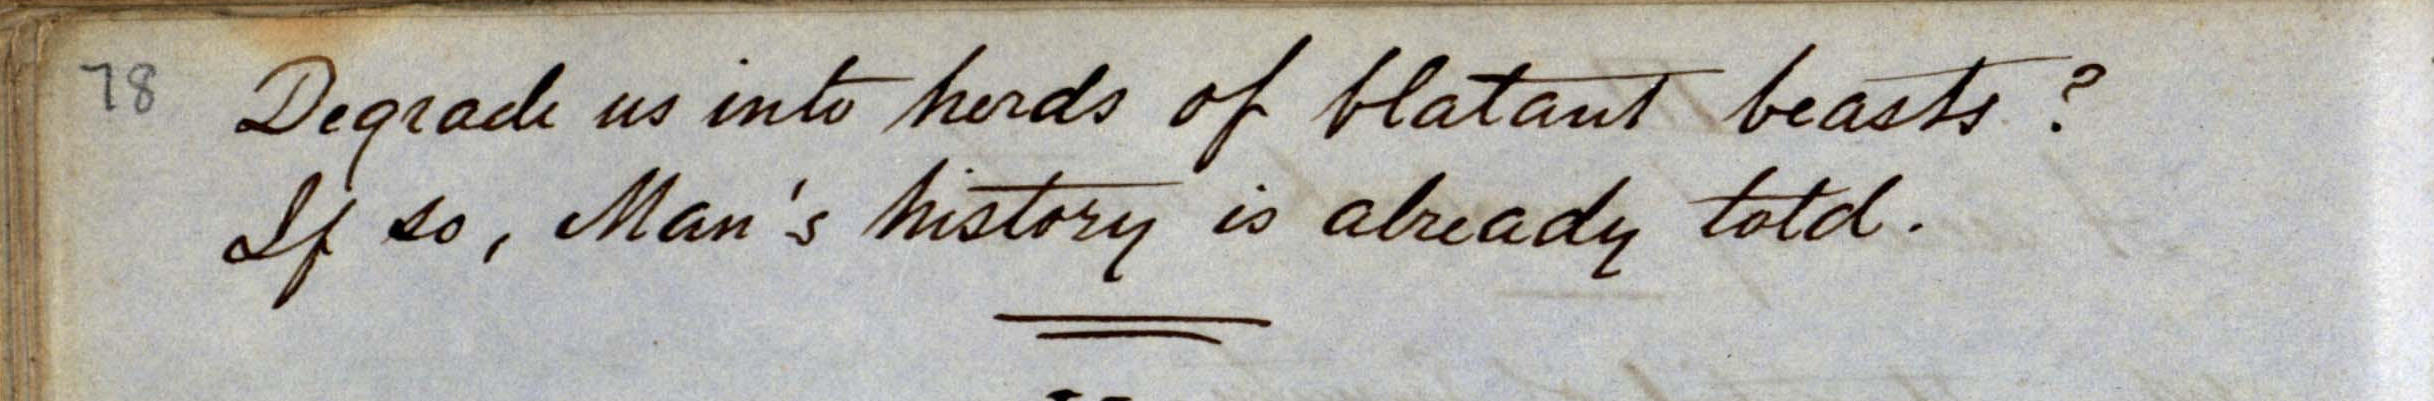 78
Degrade us into herds of blatant beasts?
If so, Man's history is already told.